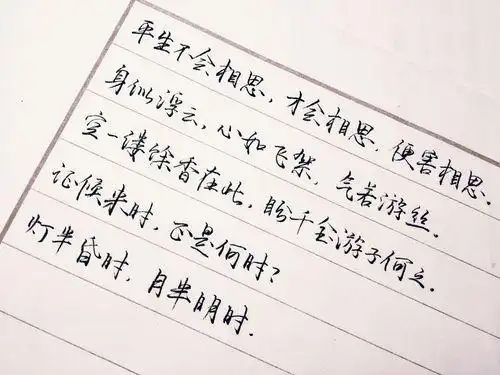 平生不会相思，才会相思，便害相思。
身似浮云，心如飞絮，气若游丝。
空一缕馀香在此，盼千金游子何之。
证候来时，正是何时？
灯半昏时，月半明时。